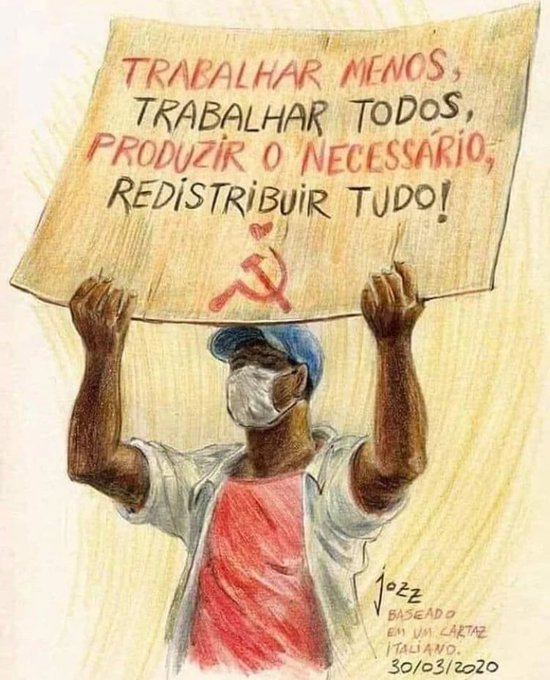 TRABALHAR MENOS,
TRABALHAR TODOS,
PRODUZIR O NECESSÁRIO,
REDISTRIBUIR TUDO!
jozz
BASEADO
EM UM CARTAZ
ITALIANO.
30/03/2020